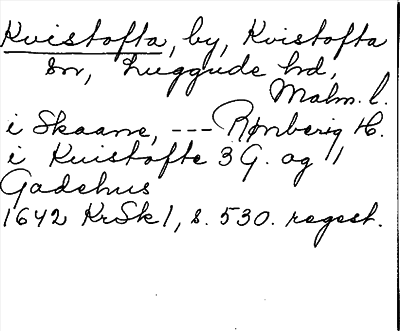 Kvistofta, by, Kvistofta
sn, Luggude hd,
Malm. l.
i Skaane, --- Rønberig H.
i Kvistofte 3 G. og 11
Gadehus
1642 KrSk 1, s. 530. regest.